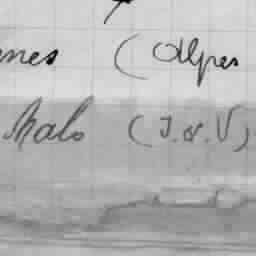 nnes (Alpes
Malo (I. & V)